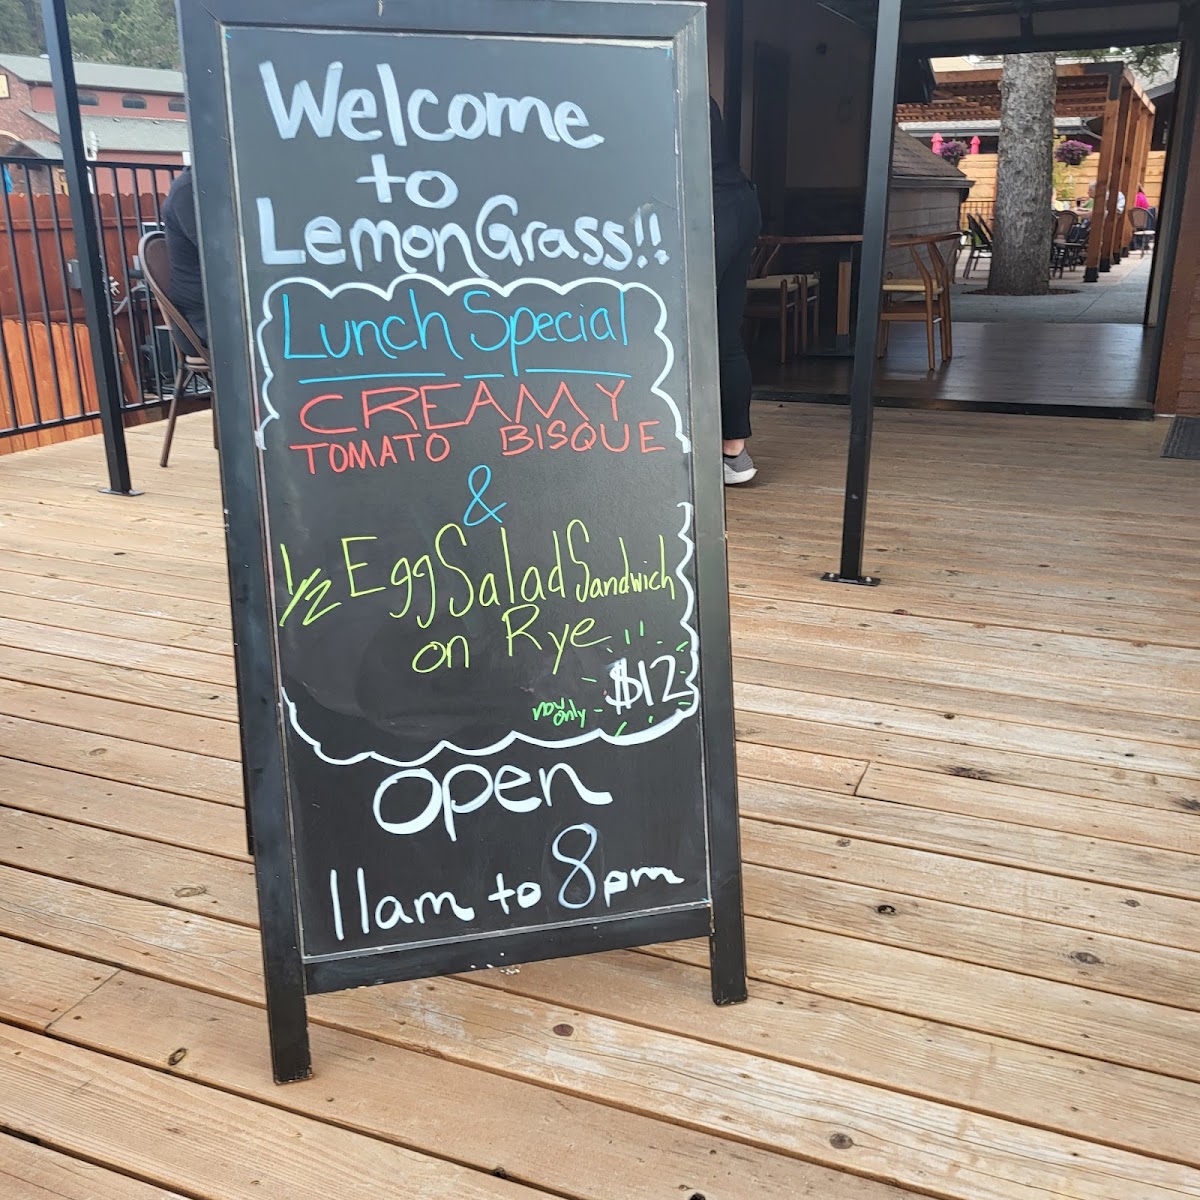 Welcome
to
LemonGrass!!
Lunch Special
CREAMY
TOMATO BISQUE
&
1/2 Egg Salad Sandwich
on Rye
now only $12
Open
11am to 8pm